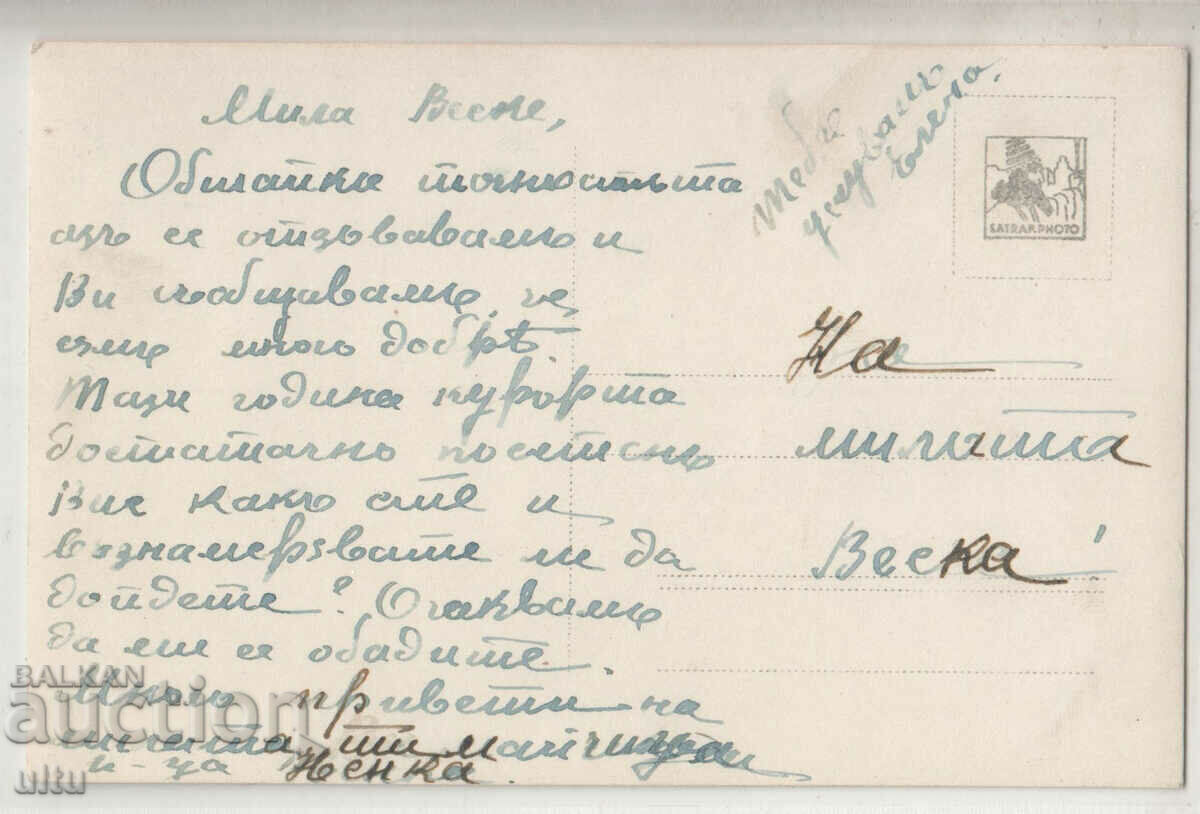 Мила Веске,
Обичайки точностьта
азъ се отзъвавамъ и
Ви съобщавамъ, че
съмъ много добрѣ.
Тази година курорта
достатъчно посетенъ
Вие какъ сте и
възнамерявате ли да
дойдете? Очаквамъ
да ми се обадите.
Много привети на
ти
Ненка.
Тебе
целувамъ
Елена.
SATRAP.PHOTO
На
милата
Веска!
BALKAN
auction
ultu